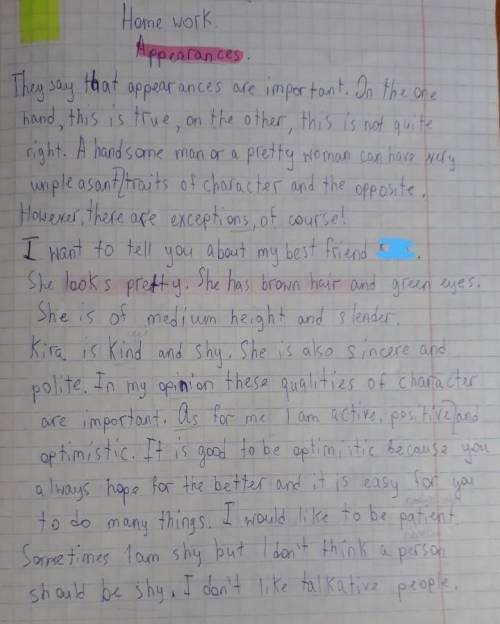 Home work.
Appearances.
They say that appearances are important. On the one
hand, this is true, on the other, this is not quite
right. A handsome man or a pretty woman can have very
unpleasant traits of character and the opposite.
However, there are exceptions, of course!
I want to tell you about my best friend
She looks pretty. She has brown hair and green eyes.
She is of medium height and slender.
Kira is kind and shy. She is also sincere and
polite. In my opinion these qualities of character
are important. As for me I am active, positive and
optimistic. It is good to be optimistic because you
always hope for the better and it is easy for you
to do many things. I would like to be patient.
Sometimes I am shy but I don't think a person
should be shy. I don't like talkative people.